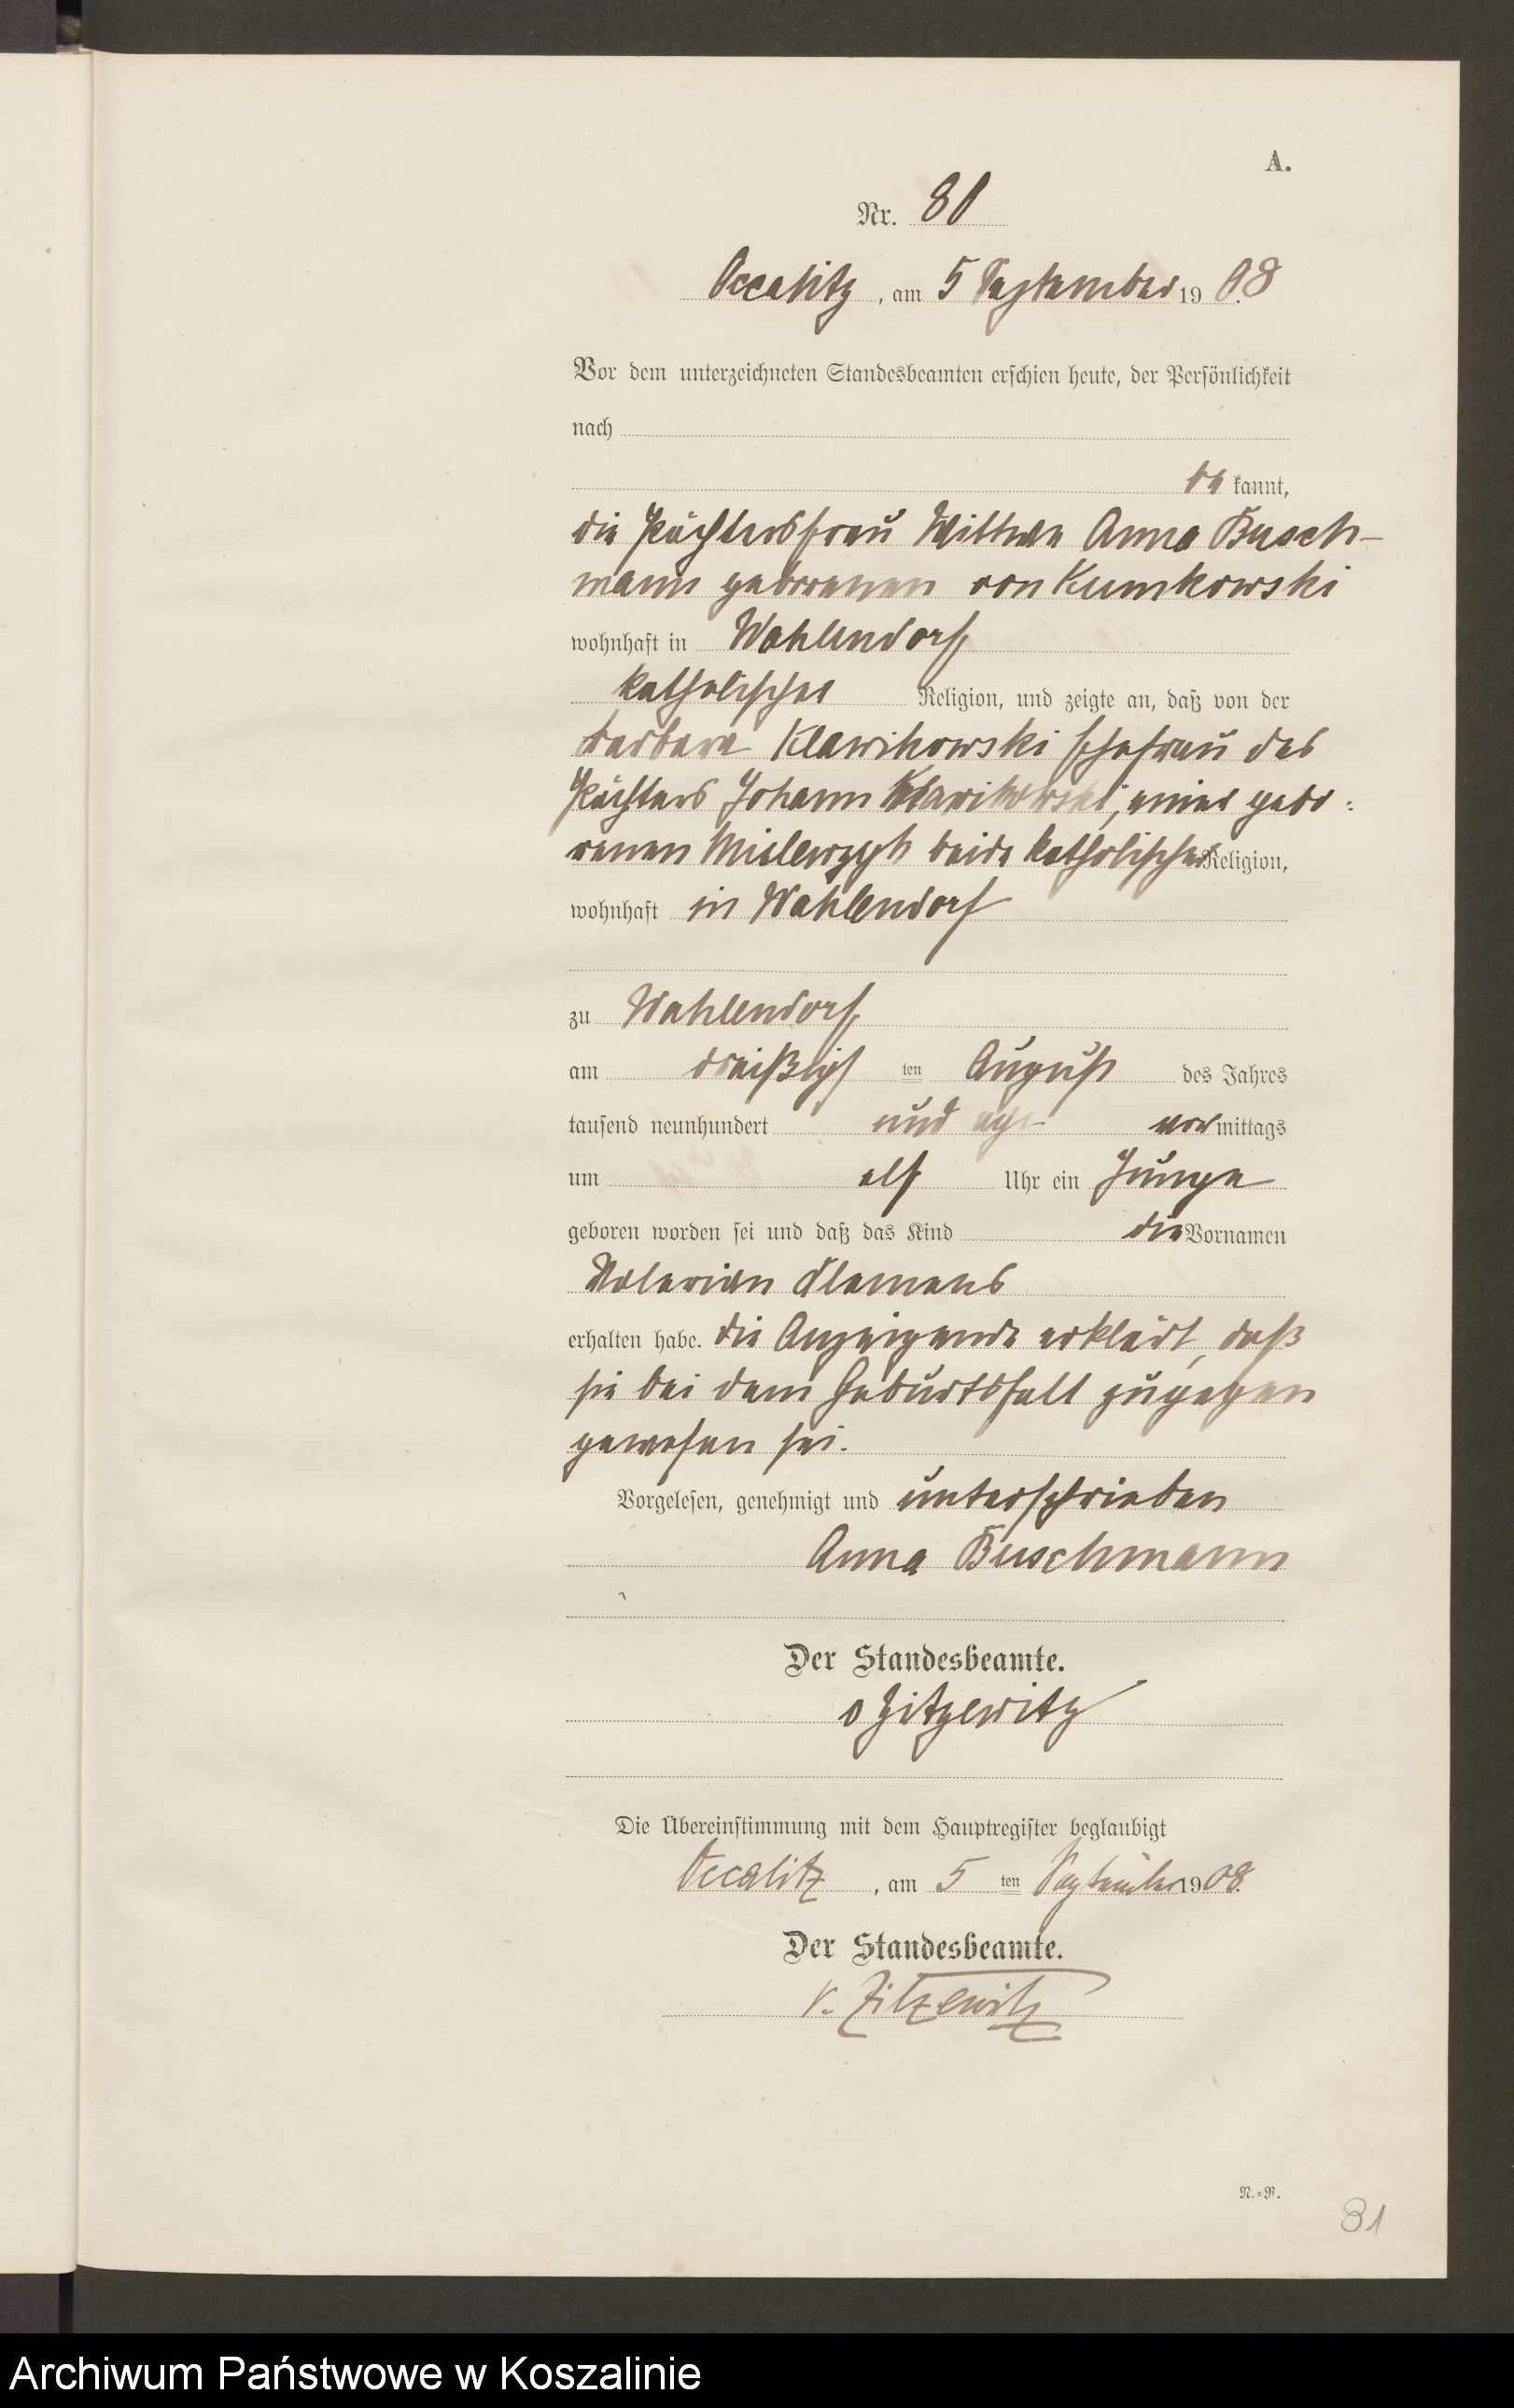 A.
Nr. 80
Occalitz, am 5 September 1908.
Vor dem unterzeichneten Standesbeamten erschien heute, der Persönlichkeit
nach
be kannt,
die Pächtersfrau Wittwe Anna Busch-
mann geborenen von Kumkowski
wohnhaft in Wahlendorf
katholischer Religion, und zeigte an, daß von der
Barbara Klawikowski Ehefrau des
Pächters Johann Klawikowski, einer gebo-
renen beide katholischer Religion,
wohnhaft in Wahlendorf
zu Wahlendorf
am dreißigsten August des Jahres
tausend neunhundert und acht vormittags
um elf Uhr ein Junge
geboren worden sei und daß das Kind die Vornamen
Klemens
erhalten habe. Die Anzeigende erklärt, daß
sie bei dem Geburtsfall zugegen
gewesen sei.
Vorgelesen, genehmigt und unterschrieben
Anna Buschmann
Der Standesbeamte.
v Zitzewitz
Die Übereinstimmung mit dem Hauptregister beglaubigt
Occalitz, am 5 ten September 1908.
Der Standesbeamte.
v. Zitzewitz
N.=R.
31
Archiwum Państwowe w Koszalinie